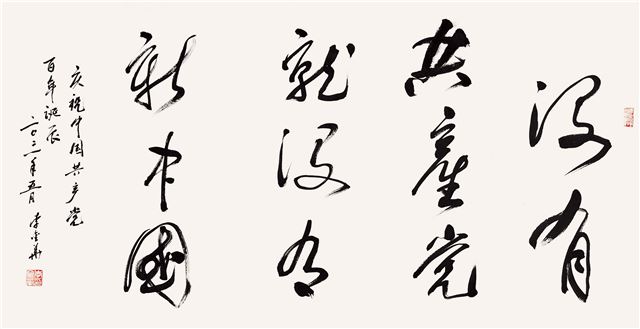 没有
共產党
就没有
新中國
庆祝中国共产党
百年诞辰
二〇二一年五月 李金华